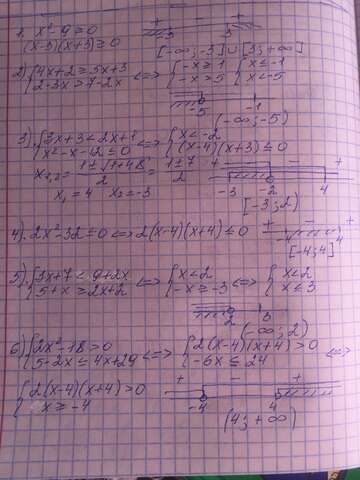 1. x²-9≥0
(x-3)(x+3)≥0
+ - +
-3 3
[-∞;-3]∪[3;+∞]
2) {4x+2≥5x+3 <=> {-x≥1 {x≤-1
2-3x>7-2x -x>5 x<-5
-5 -1
(-∞;-5)
3) {3x+3<2x+1 <=> {x<-2
x²-x-12≤0 (x-4)(x+3)≤0
x₁,₂ = 1±√1+48 / 2 = 1±7 / 2
+ - - +
-3 -2 4
x₁=4 x₂=-3
[-3;2)
4). 2x²-32≤0 <=> 2(x-4)(x+4)≤0
+ - +
-4 4
[-4;4]
5) {3x+7<9+2x <=> {x<2 <=> {x<2
5+x≥2x+2 -x≥-3 x≤3
2 3
(-∞;2)
6) {2x²-18>0 <=> {2(x-4)(x+4)>0 <=>
5-2x≤4x+29 -6x≤24
{2(x-4)(x+4)>0
x≥-4
+ - +
-4 4
(4;+∞)